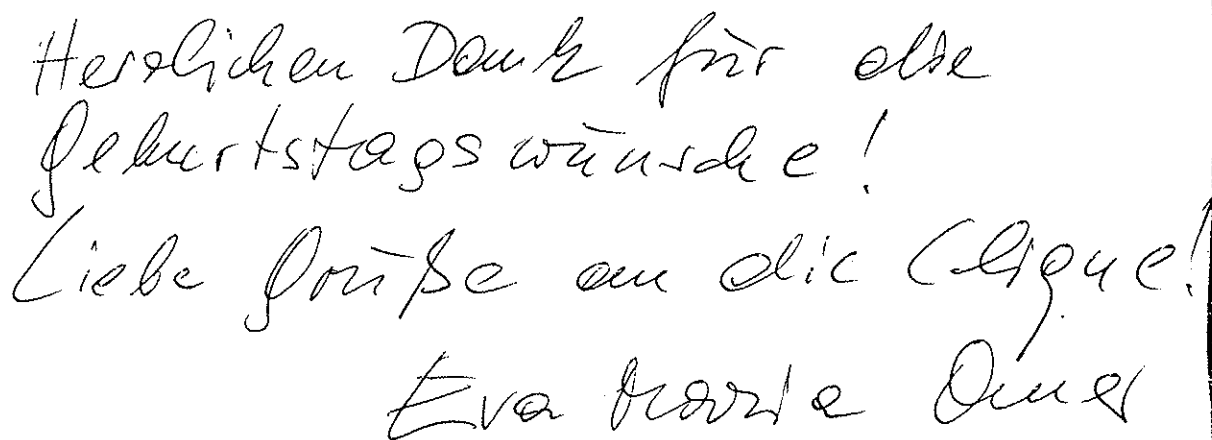 Herzlichen Dank für die
Geburtstagswünsche!
Liebe Grüße an die Clique!
Eva Maria